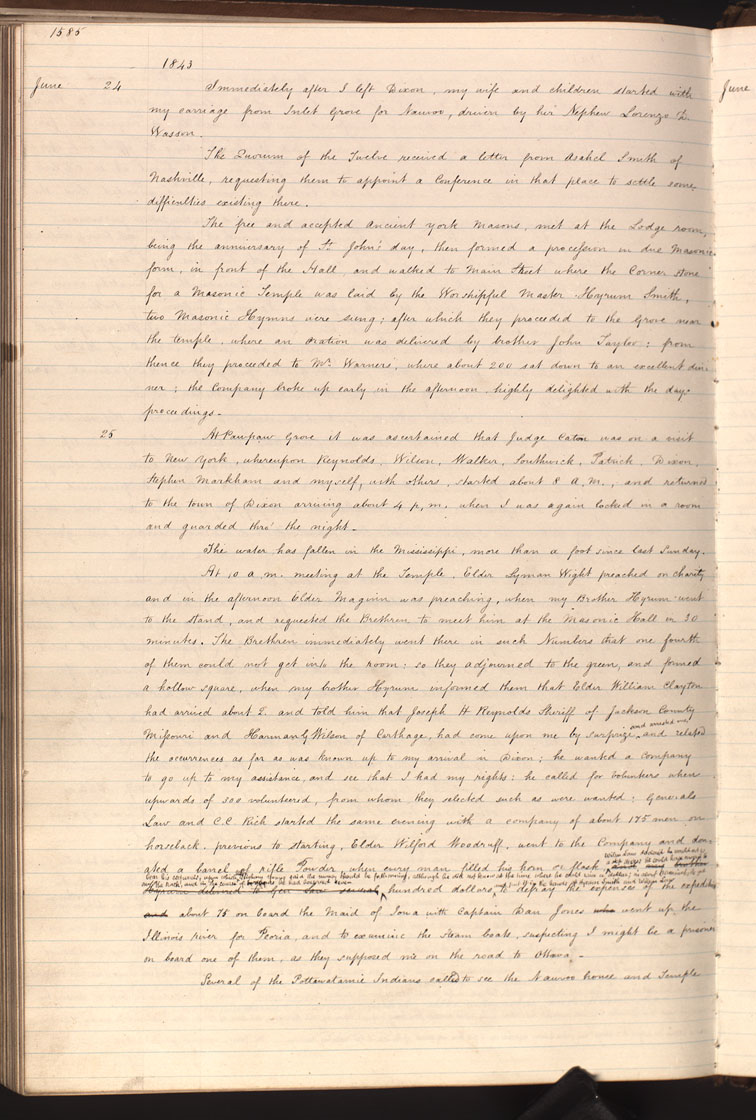 1585
1843
June 24 Immediately after I left Dixon, my wife and children started with
my carriage from Inlet Grove for Nauvoo, driven by her Nephew Lorenzo D.
Wasson.
The Quorum of the Twelve received a letter from Asahel Smith of
Nashville, requesting them to appoint a Conference in that place to settle some
difficulties existing there.
The free and accepted Ancient york Masons, met at the Lodge room,
being the anniversary of St. John's day, then formed a procession in due Masonic
form, in front of the Hall, and walked to Main Street where the Corner stone
for a Masonic Temple was laid by the Worshipful Master Hyrum Smith,
two Masonic Hymns were sung; after which they proceeded to the Grove near
the temple, where an oration was delivered by brother John Taylor: from
thence they proceeded to Mr. Warner's, where about 200 sat down to an excellent din-
ner; the Company broke up early in the afternoon highly delighted with the day's
proceedings.
25 At Pawpaw Grove it was ascertained that Judge Caton was on a visit
to New York, whereupon Reynolds, Wilson, Walker, Southwick, Patrick, Dixon,
Stephen Markham and myself, with others, started about 8 A.M., and returned
to the town of Dixon arriving about 4 p.m. when I was again locked in a room
and guarded thro' the night.
The water has fallen in the Mississippi, more than a foot since last Sunday.
At 10 a.m. meeting at the Temple, Elder Lyman Wight preached on charity
and in the afternoon Elder Maginn was preaching, when my Brother Hyrum went
to the stand, and requested the Brethren to meet him at the Masonic Hall in 30
minutes. The Brethren immediately went there in such Numbers that one fourth
of them could not get into the room; so they adjourned to the green, and formed
a hollow square, when my brother Hyrum informed them that Elder William Clayton
had arrived about 2. and told him that Joseph H Reynolds Sheriff of Jackson County
Missouri and Harman G Wilson of Carthage, had come upon me by surprize and arrested me, and related
the occurrences as far as was known up to my arrival in Dixon; he wanted a company
to go up to my assistance, and see that I had my rights: he called for volunteers when
upwards of 300 volunteered, from whom they selected such as were wanted: Generals
Law and C.C. Rich started the same evening with a company of about 175 men on
horseback. previous to starting, Elder Wilford Woodruff, went to the Company and don-
ated a barrel of rifle Powder, when every man filled his horn or flask
hundred dollars, to defray the expenses of the expedition
and about 75 on board the Maid of Iowa with Captain Dan Jones who went up the
Illinois river for Peoria, and to examine the steam boats, suspecting I might be a prisoner
on board one of them, as they supposed me on the road to Ottava.
Several of the Pottawatamie Indians called to see the Nauvoo house and Temple
June